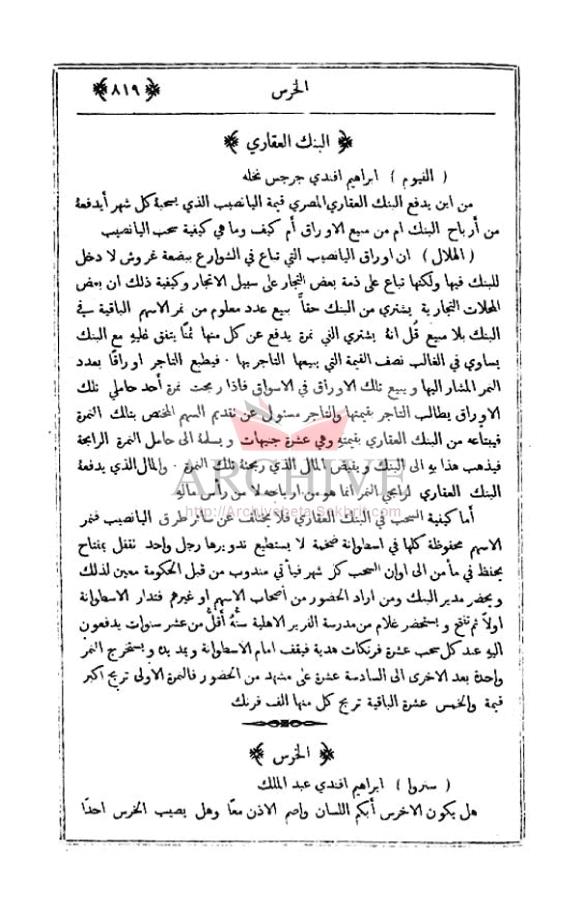 الخرس
﴿ ٨١٩ ﴾
﴿ البنك العقاري ﴾
( الفيوم ) ابراهيم افندي جرجس نخله
من اين يدفع البنك العقاري المصري قيمة اليانصيب الذي يسحبهُ كل شهر أيدفعهُ
من أرباح البنك ام من مبيع الاوراق أم كيف وما هي كيفية سحب اليانصيب
( الهلال ) ان اوراق اليانصيب التي تباع في الشوارع ببضعة غروش لا دخل
للبنك فيها ولكنها تباع على ذمة بعض التجار على سبيل الاتجار وكيفية ذلك ان بعض
المحلات التجارية يشتري من البنك حقاً ببيع عدد معلوم من نمر الاسهم الباقية في
البنك بلا مبيع قُل انهُ يشتري الفي نمرة يدفع عن كل منها ثمنًا يتفق عليهِ مع البنك
يساوي في الغالب نصف القيمة التي يبيعها التاجر بها ٠ فيطبع التاجر اوراقًا بعدد
النمر المشار اليها ويبيع تلك الاوراق في الاسواق فاذا ربحت نمرة أحد حاملي تلك
الاوراق يطالب التاجر بقيمتها والتاجر مسئول عن تقديم السهم المختص بتلك النمرة
فيبتاعه من البنك العقاري بقيمتهِ وهي عشرة جنيهات ويسلمهُ الى حامل النمرة الرابحة
فيذهب هذا بهِ الى البنك ويقبض المال الذي ربحتهُ تلك النمرة ٠ والمال الذي يدفعهُ
البنك العقاري لرابحي النمر انما هو من ارباحه لا من رأس ماله
ARCHIVE
http://Archivebeta.Sakhrit.com
أما كيفية السحب في البنك العقاري فلا يختلف عن سائر طرق اليانصيب فنمر
الاسهم محفوظة كلها في اسطوانة ضخمة لا يستطيع تدويرها رجل واحد تقفل بمفتاح
يحفظ في مأمن الى اوان السحب كل شهر فيأتي مندوب من قبل الحكومة معين لذلك
ويحضر مدير البنك ومن اراد الحضور من أصحاب الاسهم او غيرهم فتدار الاسطوانة
اولاً ثم تفتح ويستحضر غلام من مدرسة الفرير الاهلية سنُّهُ أقل من عشر سنوات يدفعون
اليهِ عند كل سحب عشرة فرنكات هدية فيقف امام الاسطوانة ويمد يدهُ ويستخرج النمر
واحدة بعد الاخرى الى السادسة عشرة على مشهد من الحضور فالنمرة الاولى تربح اكبر
قيمة والخمس عشرة الباقية تربح كل منها الف فرنك
﴿ الخرس ﴾
( سنروا ) ابراهيم افندي عبد الملك
هل يكون الاخرس أبكم اللسان واصم الاذن معًا وهل يصيب الخرس احدًا